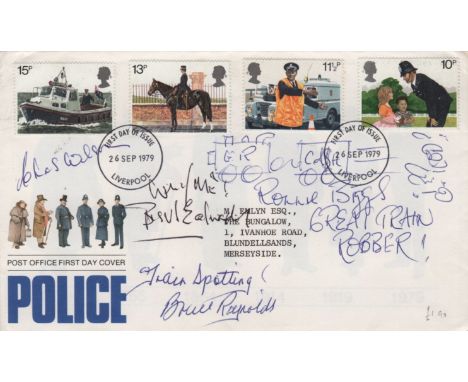 15P
13P
11½P
10P
FIRST DAY OF ISSUE
26 SEP 1979
LIVERPOOL
FIRST DAY OF ISSUE
26 SEP 1979
LIVERPOOL
Why Me?
Ronnie Biggs
GREAT TRAIN
ROBBER!
M. EMLYN ESQ.,
THE BUNGALOW,
1, IVANHOE ROAD,
BLUNDELLSANDS,
MERSEYSIDE.
POST OFFICE FIRST DAY COVER
POLICE
Train Spotting!
Bruce Reynolds